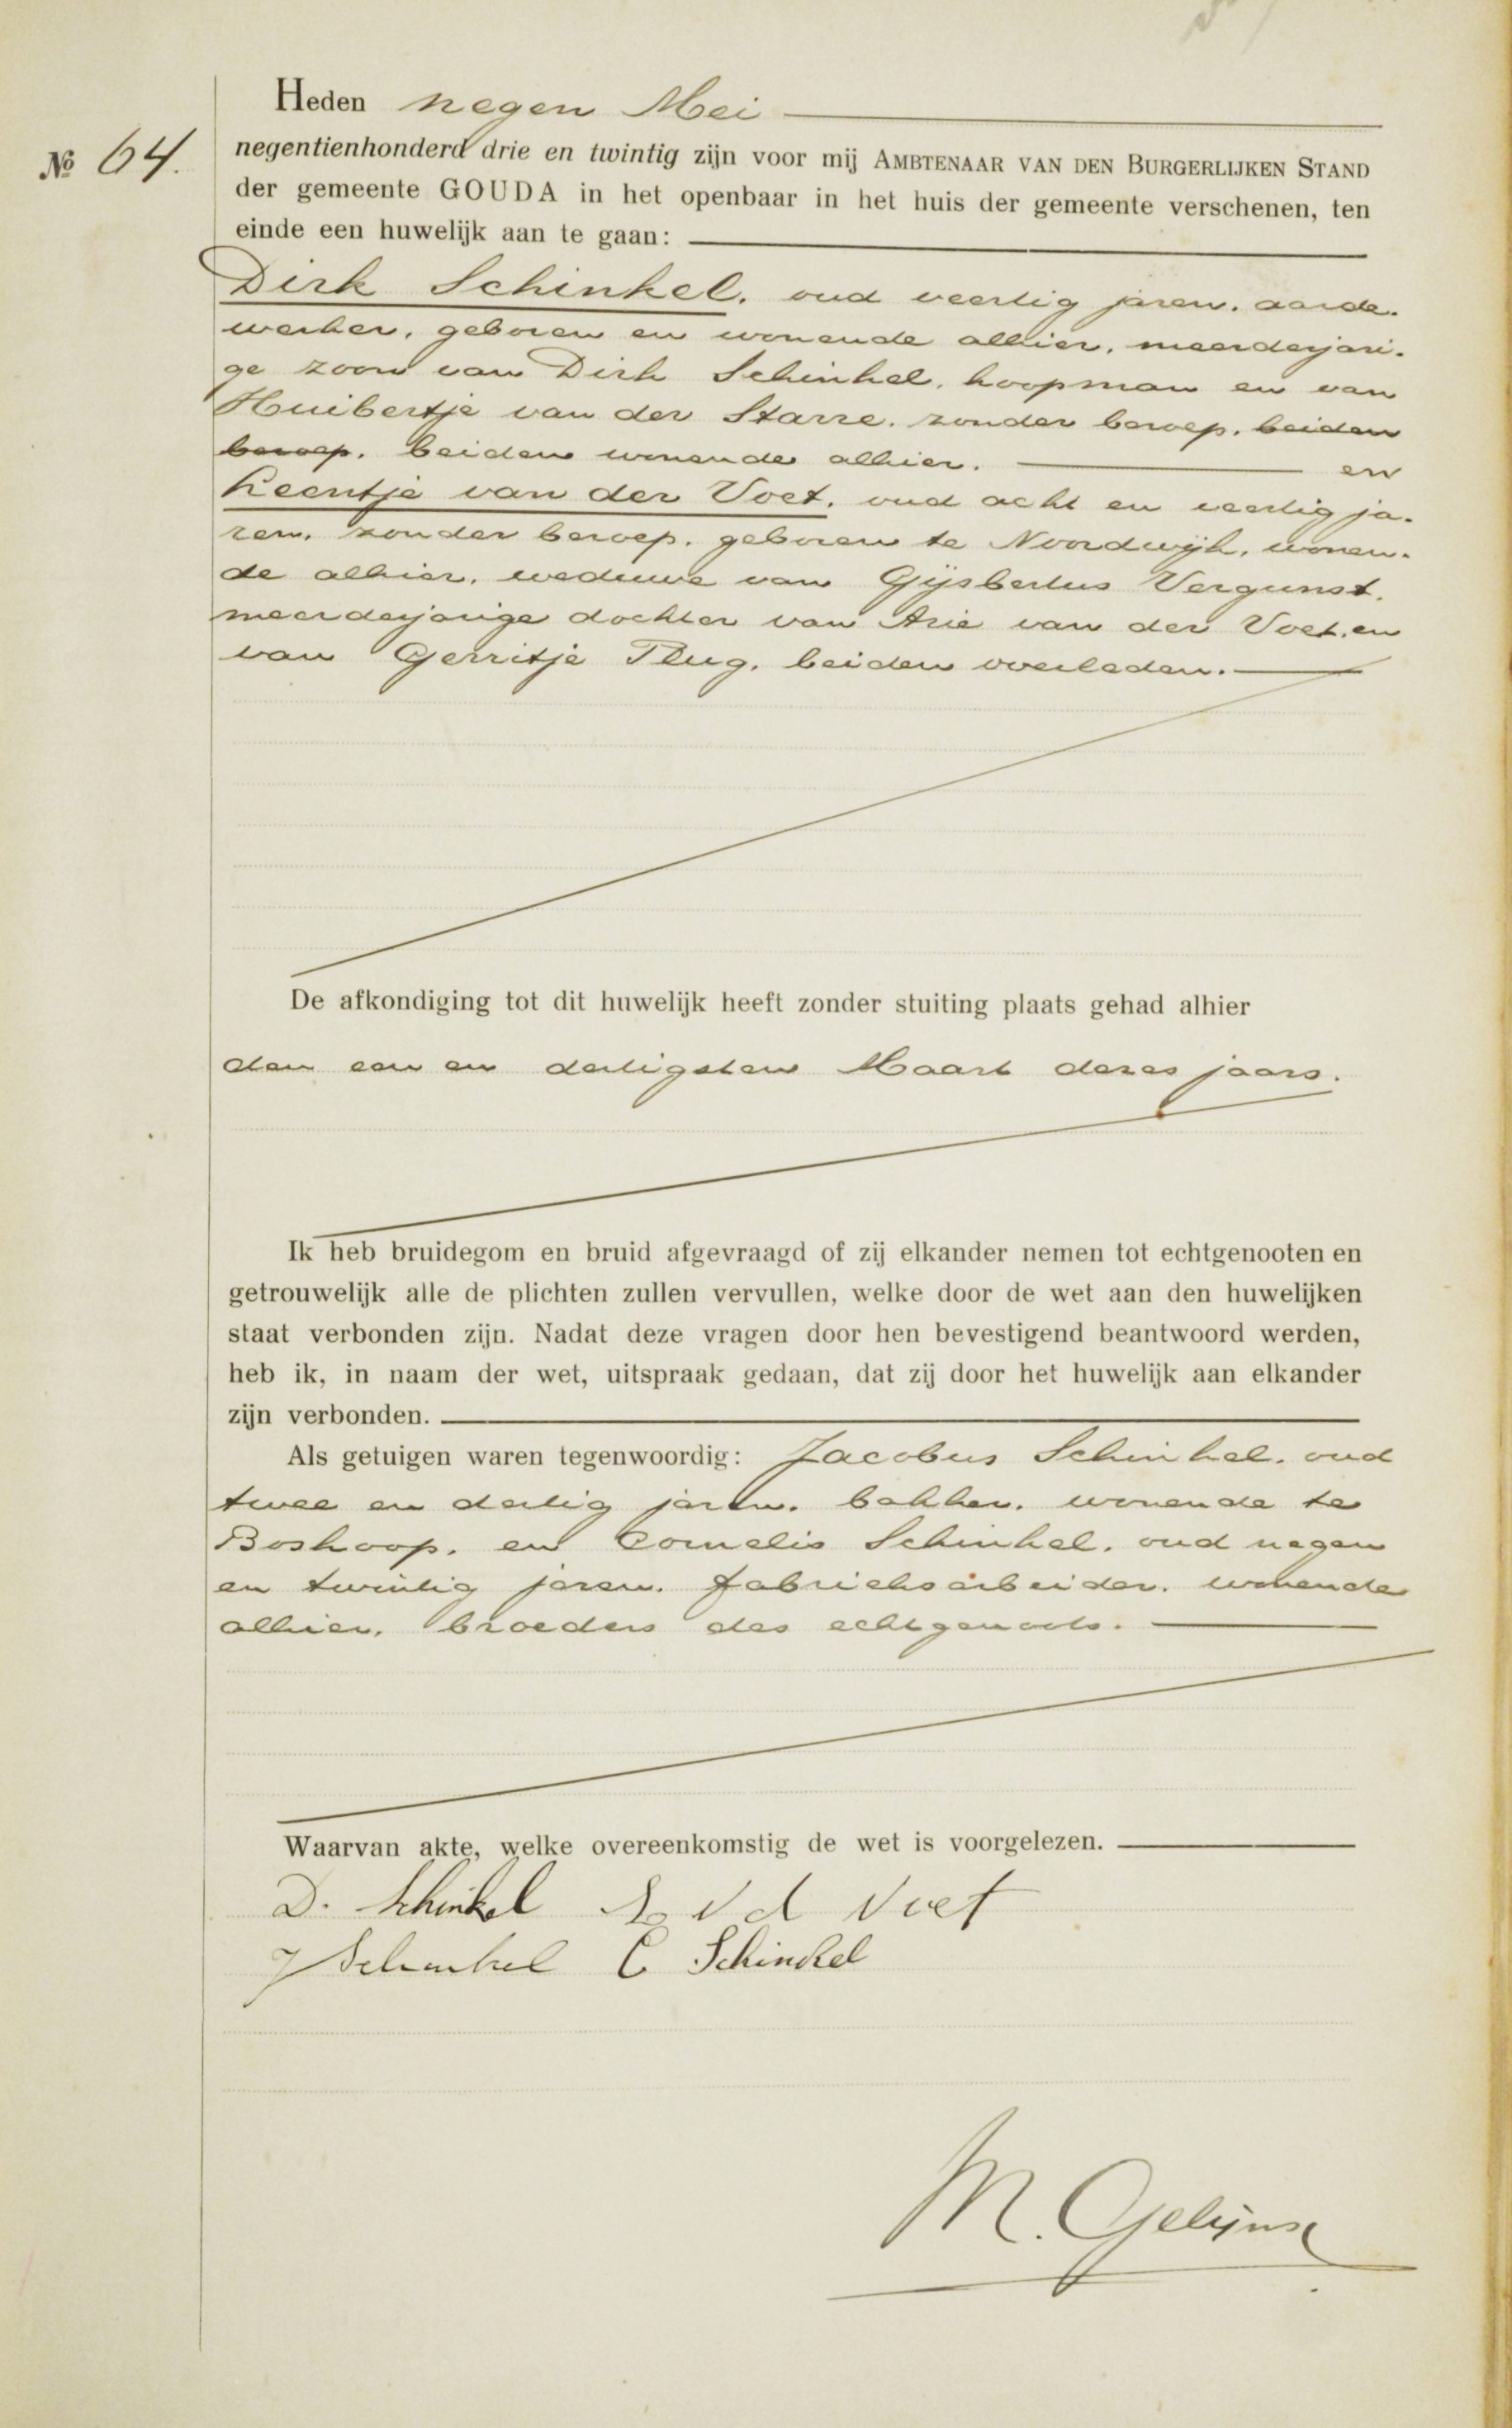 Heden negen Mei
No 64.
negentienhonderd drie en twintig zijn voor mij AMBTENAAR VAN DEN BURGERLIJKEN STAND
der gemeente GOUDA in het openbaar in het huis der gemeente verschenen, ten
einde een huwelijk aan te gaan:
Dirk Schinkel, oud veertig jaren, aarde-
werker, geboren en wonende alhier, meerderjari-
ge zoon van Dirk Schinkel, koopman en van
Huibertje van der Starre, zonder beroep, beiden
beroep, beiden wonende alhier. en
Keentje van der Voet, oud acht en veertig ja-
ren, zonder beroep, geboren te Noordwijk, wonen-
de alhier, weduwe van Gijsbertus Vergunst,
meerderjarige dochter van Arie van der Voet, en
van Gerritje Plug, beiden overleden.
De afkondiging tot dit huwelijk heeft zonder stuiting plaats gehad alhier
den een en dertigsten Maart dezes jaars.
Ik heb bruidegom en bruid afgevraagd of zij elkander nemen tot echtgenooten en
getrouwelijk alle de plichten zullen vervullen, welke door de wet aan den huwelijken
staat verbonden zijn. Nadat deze vragen door hen bevestigend beantwoord werden,
heb ik, in naam der wet, uitspraak gedaan, dat zij door het huwelijk aan elkander
zijn verbonden.
Als getuigen waren tegenwoordig: Jacobus Schinkel, oud
twee en dertig jaren, bakker, wonende te
Boskoop, en Cornelis Schinkel, oud negen
en twintig jaren, fabrieksarbeider, wonende
alhier, broeders des echtgenoots.
Waarvan akte, welke overeenkomstig de wet is voorgelezen.
D. Schinkel v d Voet
J Schinkel C Schinkel
M. Gelijnse